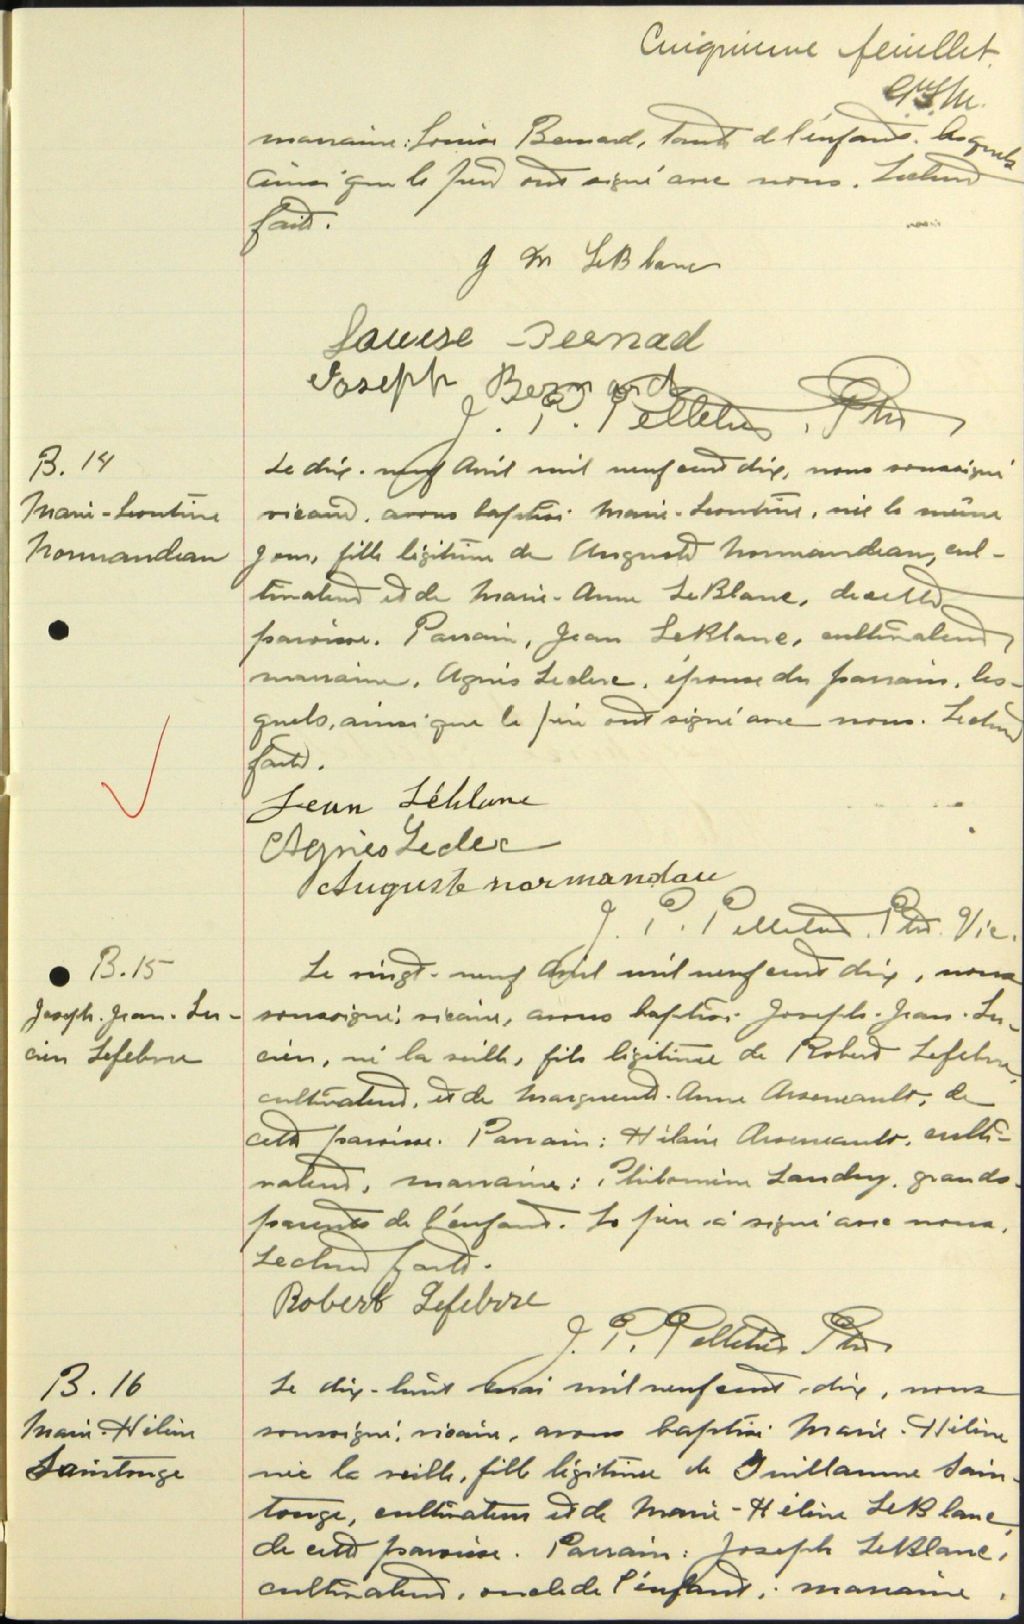 Cinquième feuillet.
marraine: Louise Bernard, tante de l'enfant. lesquels
ainsi que le père ont signé avec nous. Lecture
faite.
J M LeBlanc
Louise Bernad
Joseph Bernard
J. P. Pelletier, Ptre
B. 14
Marie-Léontine
Normandeau
Le dix-neuf Avril mil neuf cent dix, nous soussigné
vicaire, avons baptisé Marie-Léontine, née le même
jour, fille légitime de Auguste Normandeau, cul-
tivateur et de Marie-Anne LeBlanc, de cette
paroisse. Parrain, Jean LeBlanc, cultivateur,
marraine, Agnès Leclerc, épouse du parrain, les-
quels, ainsi que le père ont signé avec nous. Lecture
faite.
Jean Léblanc
Agnès Lecler
Auguste normandau
J. P. Pelletier, Ptre. Vic.
B. 15
Joseph-Jean-Lu-
cien Lefebvre
Le vingt-neuf Avril mil neuf cent dix, nous
soussigné, vicaire, avons baptisé Joseph-Jean-Lu-
cien, né la veille, fils légitime de Robert Lefebvre,
cultivateur, et de Marguerite-Anne Arseneault, de
cette paroisse. Parrain: Hilaire Arseneault, culti-
vateur, marraine: Philomène Landry, grands-
parents de l'enfant. Le père a signé avec nous.
Lecture faite.
Robert Lefebvre
J. P. Pelletier Ptre
B. 16
Marie-Hélène
Saintonge
Le dix-huit mai mil neuf cent-dix, nous
soussigné, vicaire, avons baptisé Marie-Hélène
née la veille, fille légitime de Guillaume Sain-
tonge, cultivateur et de Marie-Hélène LeBlanc,
de cette paroisse. Parrain: Joseph LeBlanc,
cultivateur, oncle de l'enfant; marraine,